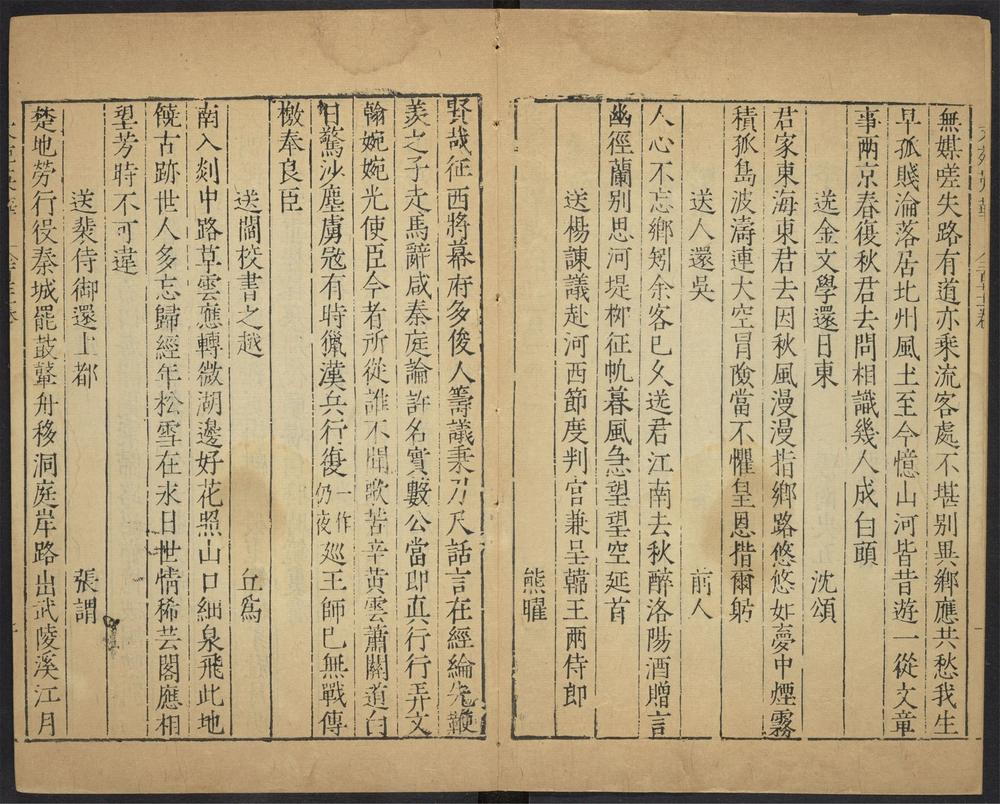 無媒嗟失路有道亦乘流客處不堪別異鄉應共愁我生
早孤賤淪落居此州風土至今憶山河皆昔遊一從文章
事兩京春復秋君去問相識幾人成白頭
送金文學還日東
沈頌
君家東海東君去因秋風漫漫指鄉路悠悠如夢中煙霧
積孤島波濤連大空冒險當不懼皇恩揩爾躬
送人還吳
前人
人心不忘鄉矧余客已久送君江南去秋醉洛陽酒贈言
幽徑蘭別思河堤柳征帆暮風急望望空延首
送楊諫議赴河西節度判官兼呈韓王兩侍郎
熊曜
賢哉征西將幕府多俊人籌議秉刀尺話言在經綸先鞭
羨之子走馬辭咸秦庭論許名實數公當即真行行弄文
翰婉婉光使臣今者所從誰不聞歌苦辛黃雲蕭關道白
日驚沙塵虜寇有時獵漢兵行復一作仍夜廵王師已無戰傳
檄奉良臣
送閻校書之越
丘為
南入剡中路草雲應轉微湖邊好花照山口細泉飛此地
饒古跡世人多忘歸經年松雪在永日世情稀芸閣應相
望芳時不可違
送裴侍御還上都
張謂
楚地勞行役秦城罷鼓鼙舟移洞庭岸路出武陵溪江月